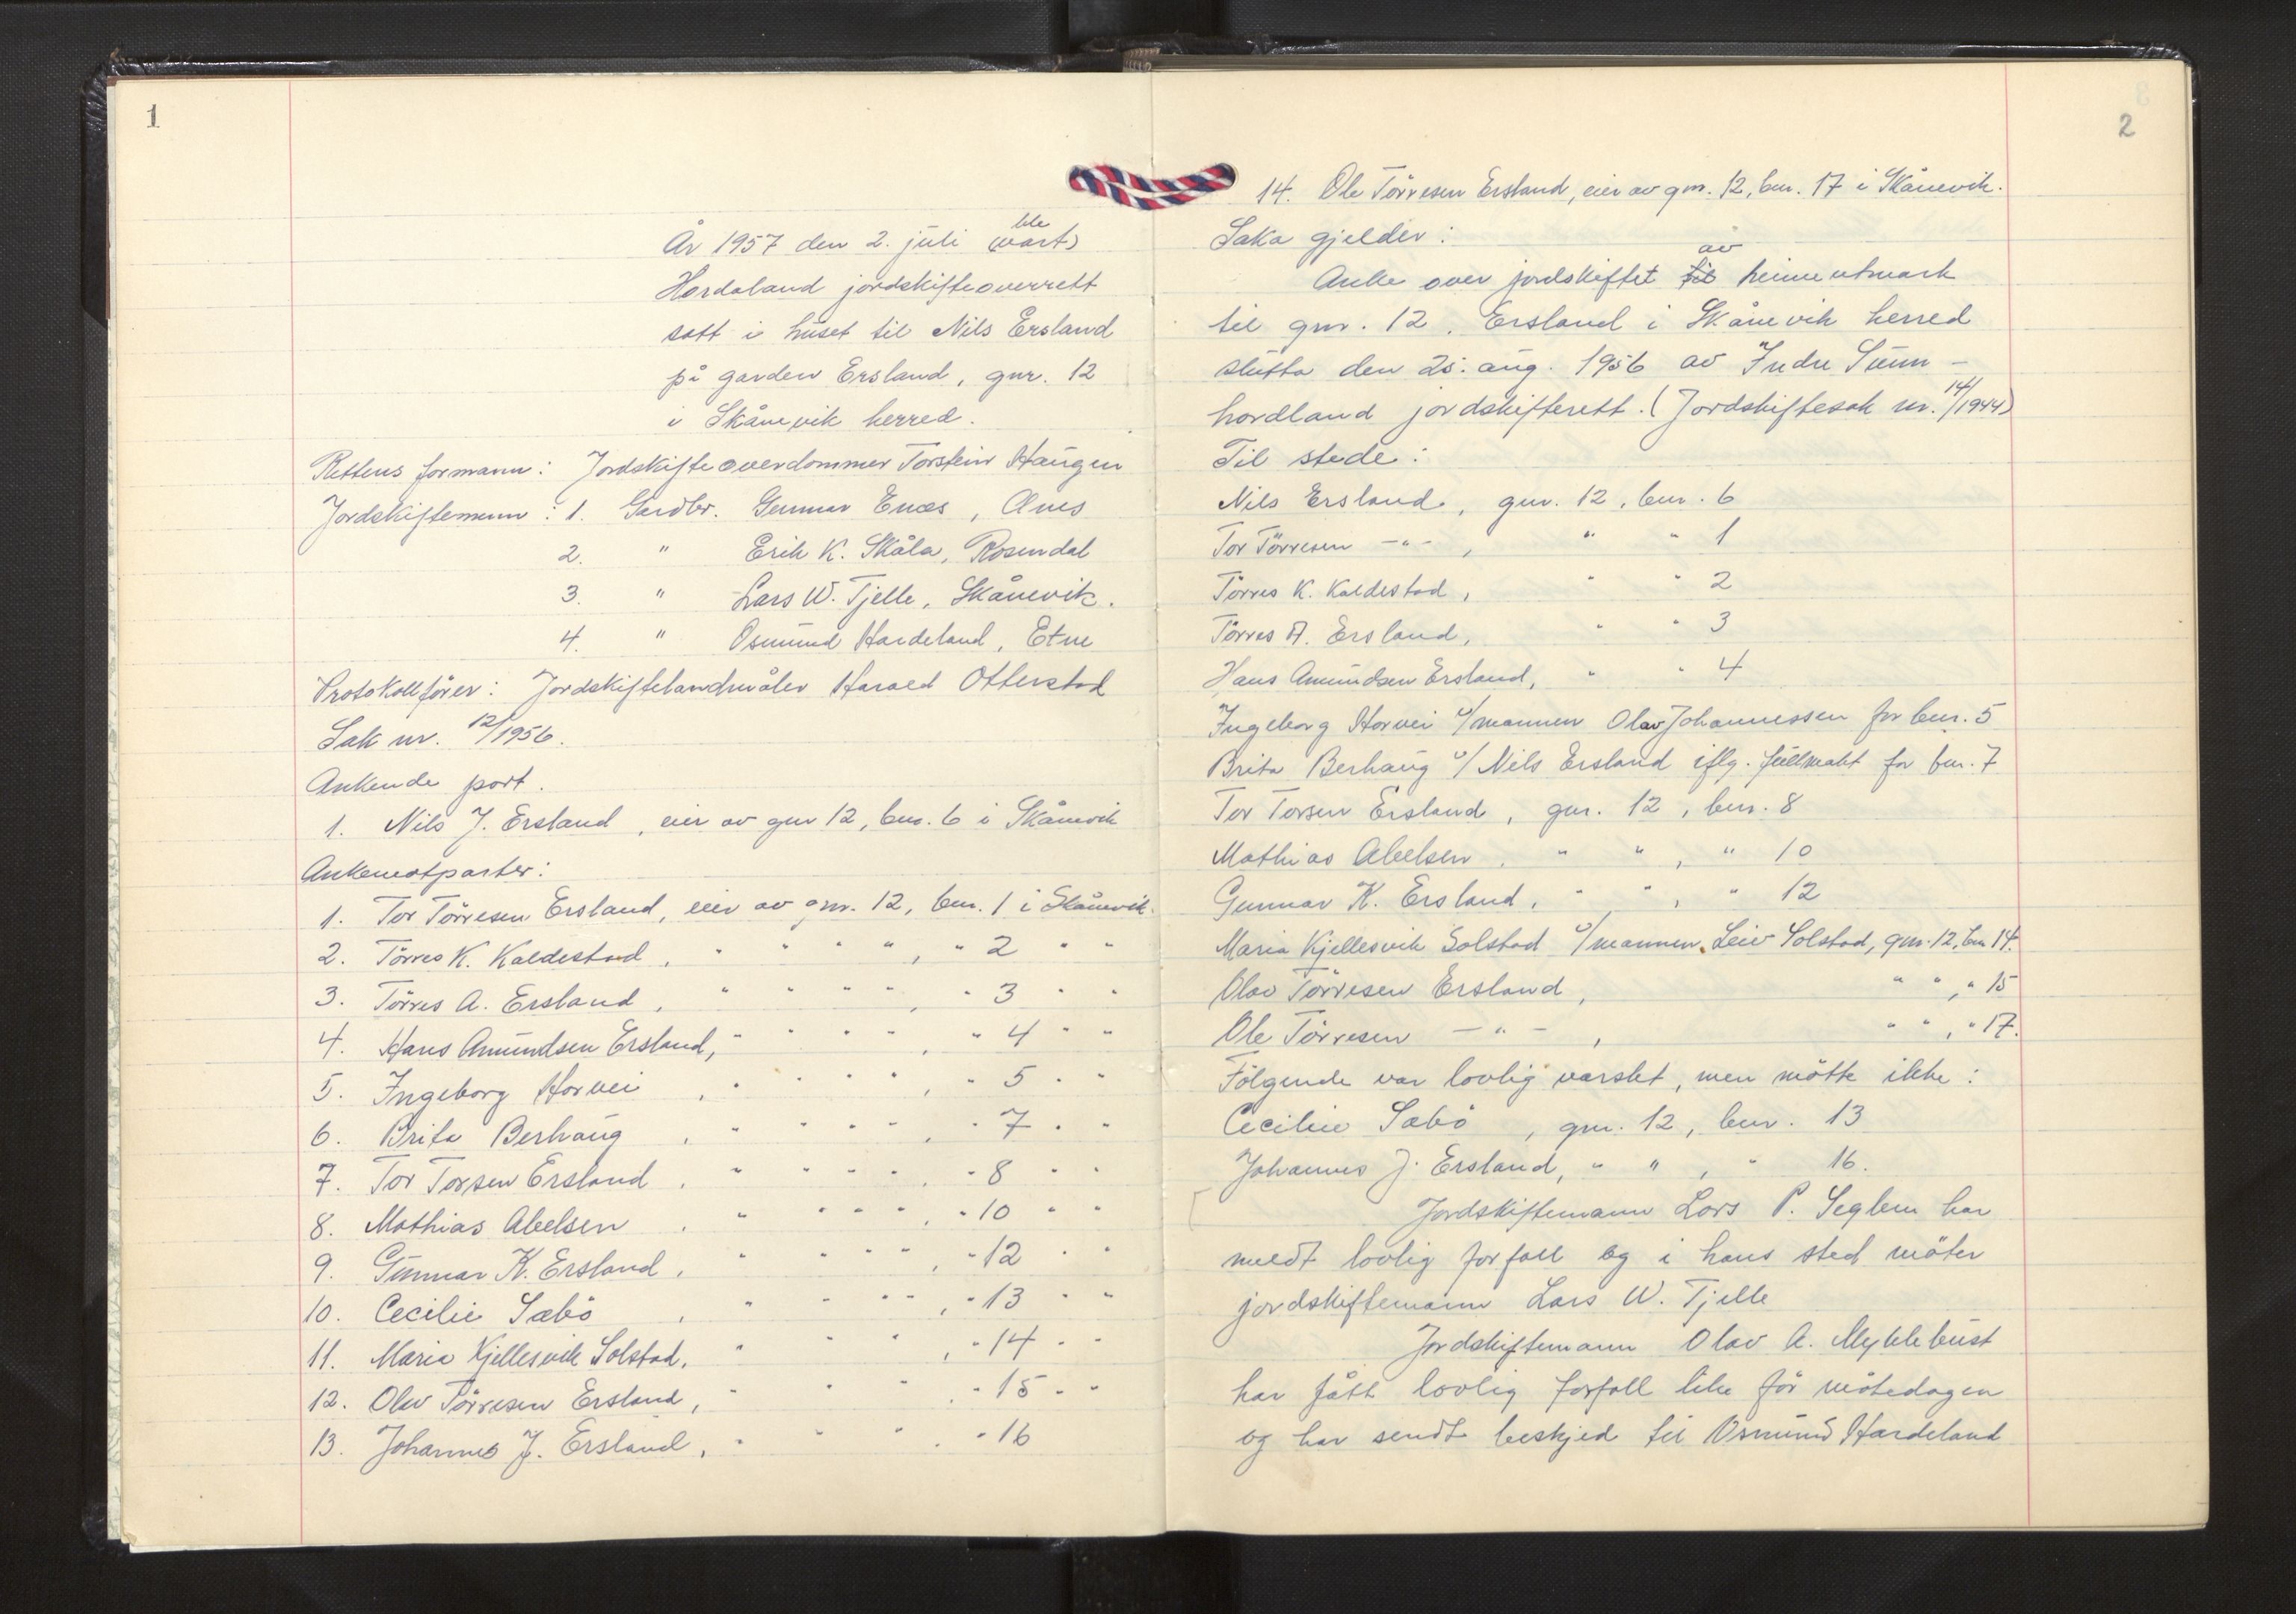 1
År 1957 den 2. juli ble (vart)
Hordaland jordskifteoverrett
satt i huset til Nils Ersland
på garden Ersland, gnr. 12
i Skånevik herred.
Rettens formann: Jordskifteoverdommer Torstein Haugen
Jordskiftemenn: 1. Gardbr. Gunnar Enæs, Ænes
2. " Erik K. Skåla, Rosendal
3. " Lars W. Tjelle, Skånevik.
4. " Osmund Hardeland, Etne
Protokollfører: Jordskiftelandmåler Harald Otterstad
Sak nr. 12/1956.
Ankende part.
1. Nils J. Ersland, eier av gnr 12, bnr. 6 i Skånevik
Ankemotparter:
1. Tor Törresen Ersland, eier av gnr. 12, bnr. 1 i Skånevik.
2. Törres K. Kaldestad, " " " " , " 2 " "
3. Törres A. Ersland, " " " " , " 3 " "
4. Hans Amundsen Ersland, " " " " , " 4 " "
5. Ingeborg Horvei , " " " " , " 5 " "
6. Brita Berhaug , " " " " , " 7 " "
7. Tor Torsen Ersland , " " " " , " 8 " "
8. Mathias Abelsen , " " " " , " 10 " "
9. Gunnar K. Ersland , " " " " , " 12 " "
10. Cecilie Sæbö , " " " " , " 13 " "
11. Maria Kjellesvik Solstad, " " " , " 14 " "
12. Olav Törresen Ersland, " " " , " 15 " "
13. Johannes J. Ersland, " " " , " 16
2
14. Ole Törresen Ersland, eier av gnr. 12, bnr. 17 i Skånevik.
Saka gjelder:
Anke over jordskiftet til av heimeutmark
til gnr. 12, Ersland i Skånevik herred
slutta den 25. aug. 1956 av Indre Sunn-
hordland jordskifterett. (Jordskiftesak nr. 14/1944)
Til stede:
Nils Ersland, gnr. 12, bnr. 6
Tor Törresen -"- , " " 1
Törres K. Kaldestad, " " 2
Törres A. Ersland, " " 3
Hans Amundsen Ersland, " " 4
Ingeborg Horvei v/mannen Olav Johannessen for bnr. 5
Brita Berhaug v/ Nils Ersland iflg. fullmakt for bnr. 7
Tor Torsen Ersland, gnr. 12, bnr. 8
Mathias Abelsen, " " , " 10
Gunnar K. Ersland, " " , " 12
Maria Kjellesvik Solstad v/mannen Leiv Solstad, gnr. 12, bnr 14.
Olav Törresen Ersland, " " , " 15
Ole Törresen -"- , " " , " 17.
Fölgende var lovlig varslet, men mötte ikke:
Cecilie Sæbö , gnr. 12, bnr. 13
Johannes J. Ersland, " " , " 16.
Jordskiftemann Lars P. Seglem har
meldt lovlig forfall og i hans sted möter
jordskiftemann Lars W. Tjelle
Jordskiftemann Olav A. Myklebust
har fått lovlig forfall like för mötedagen
og har sendt beskjed til Osmund Hardeland